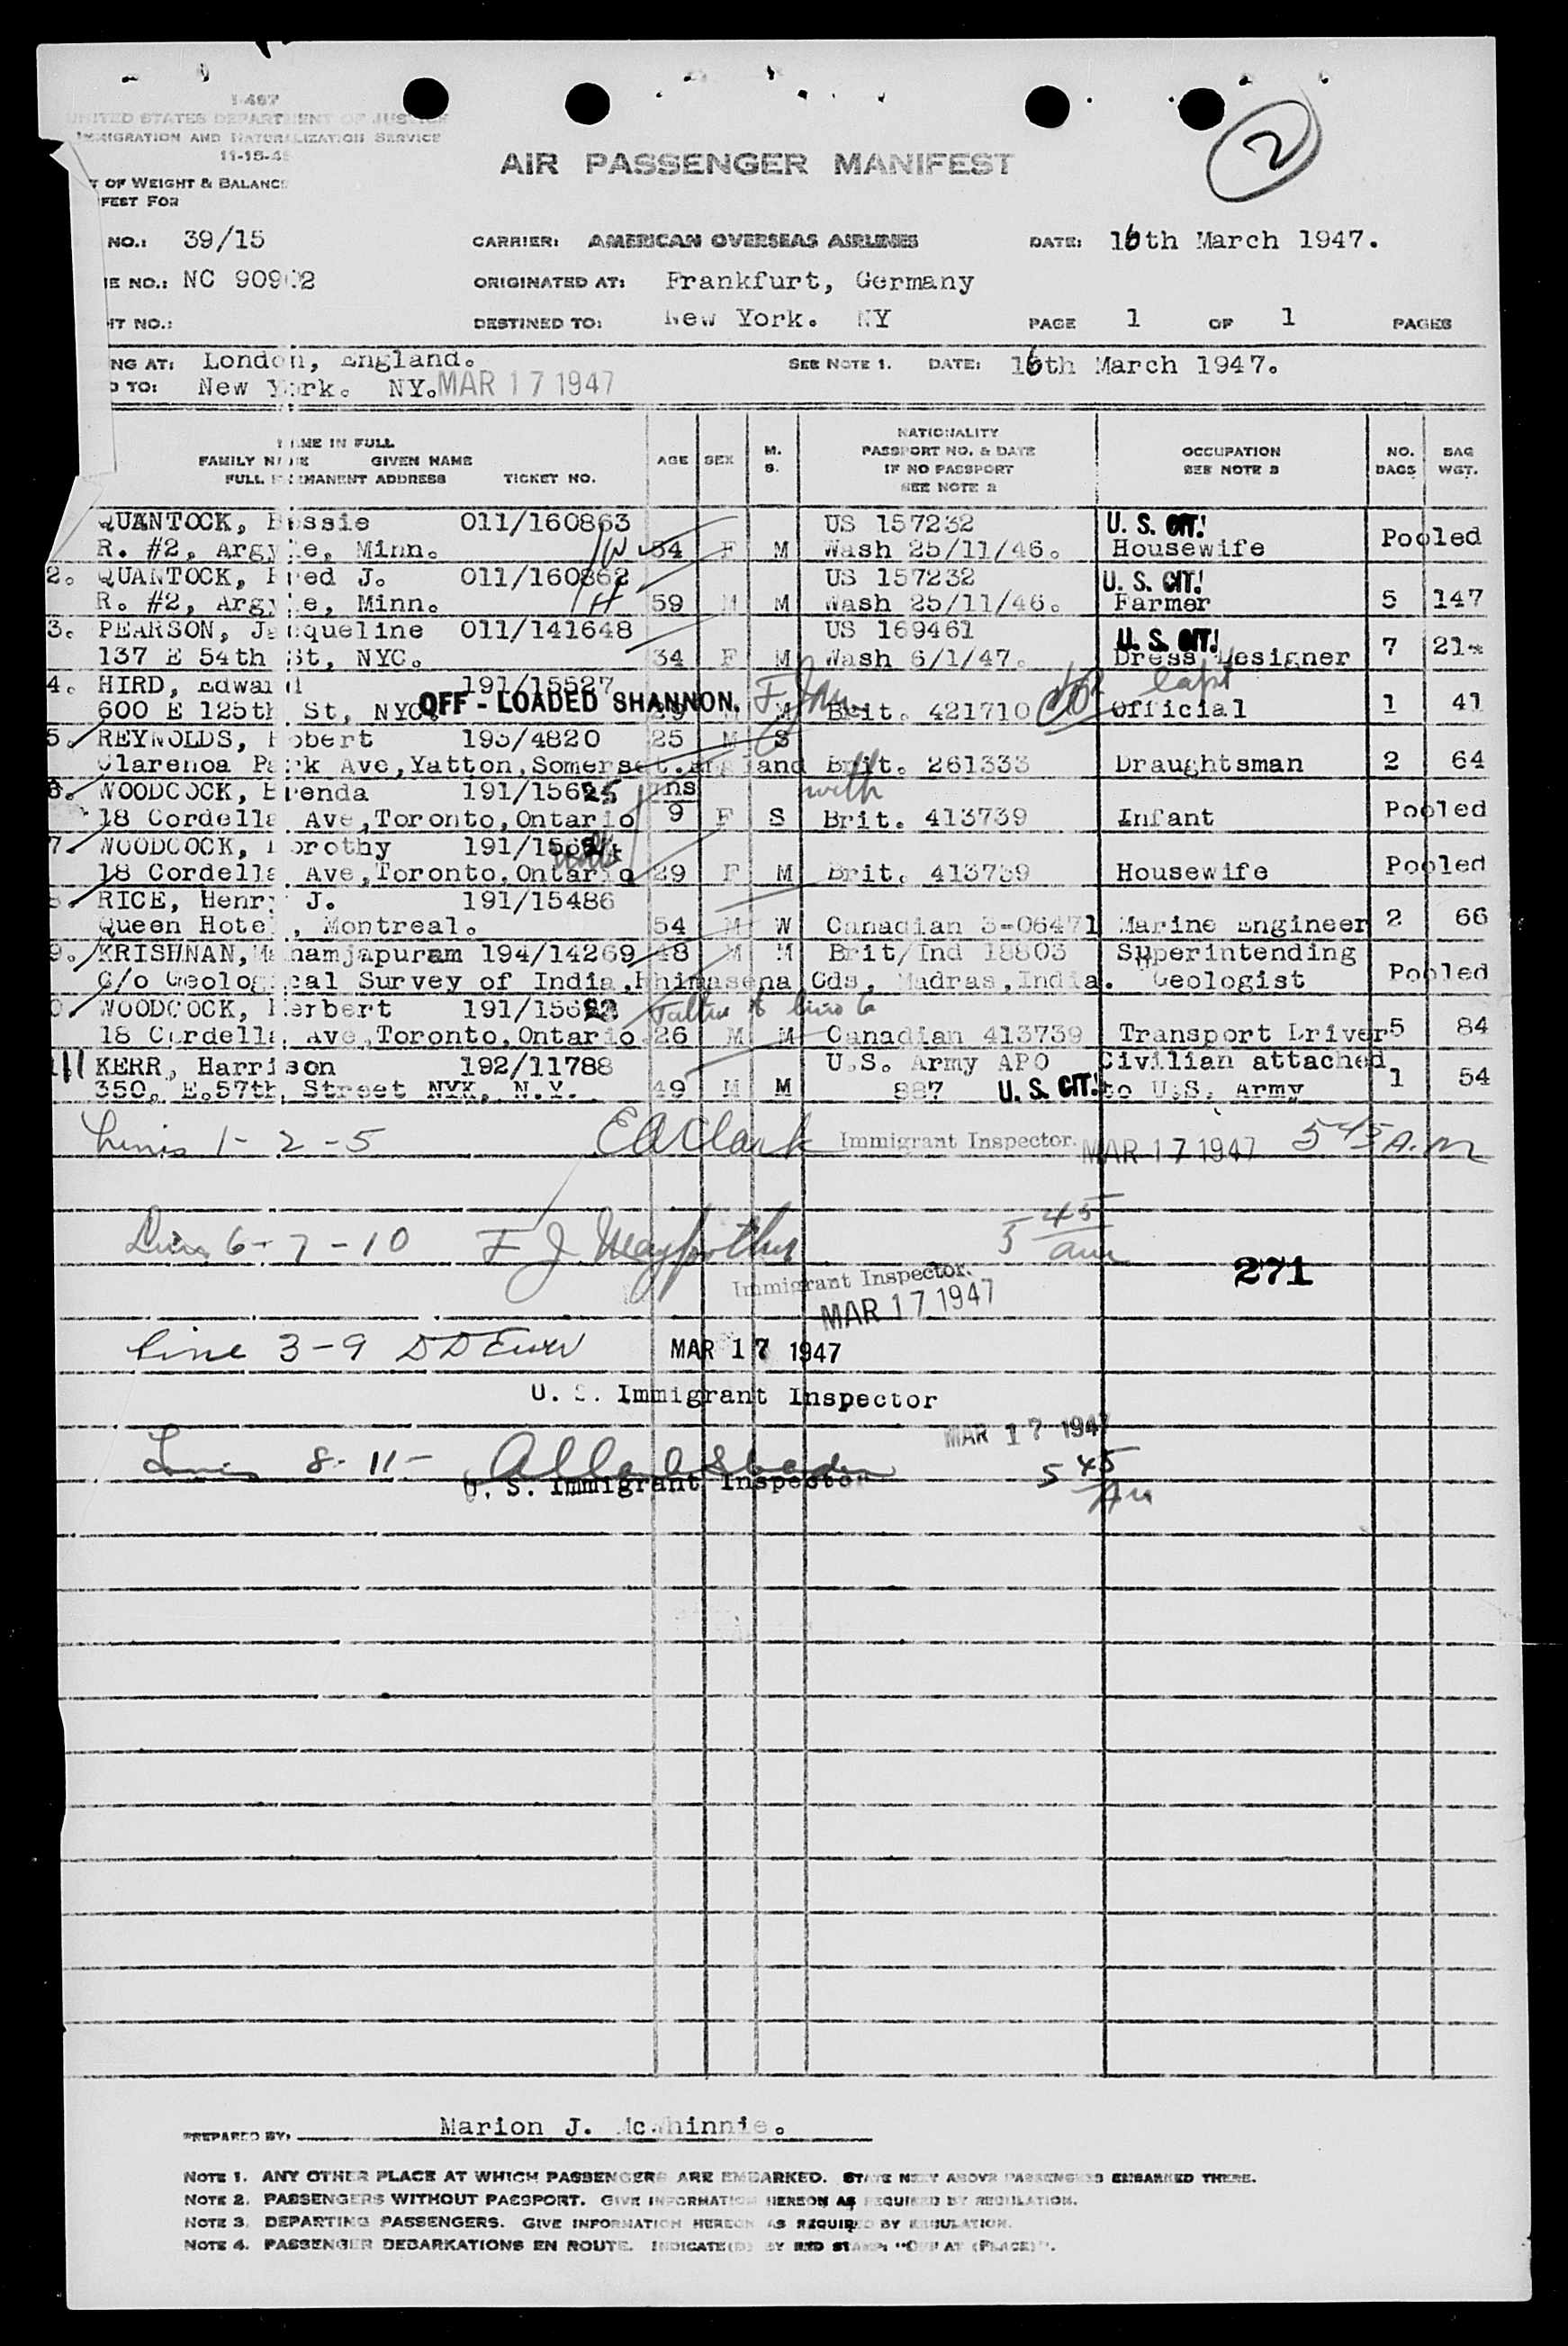 I-467
UNITED STATES DEPARTMENT OF JUSTICE
IMMIGRATION AND NATURALIZATION SERVICE
11-15-45
AIR PASSENGER MANIFEST
2
T OF WEIGHT & BALANCE
FEST FOR
NO.: 39/15 CARRIER: AMERICAN OVERSEAS AIRLINES DATE: 16th March 1947.
E NO.: NC 90902 ORIGINATED AT: Frankfurt, Germany
HT NO.: DESTINED TO: New York. NY PAGE 1 OF 1 PAGES
NG AT: London, England. SEE NOTE 1. DATE: 16th March 1947.
D TO: New York. NY. MAR 17 1947
NAME IN FULL
FAMILY NAME GIVEN NAME
FULL PERMANENT ADDRESS TICKET NO. AGE SEX M. S. NATIONALITY PASSPORT NO. & DATE IF NO PASSPORT SEE NOTE 2 OCCUPATION SEE NOTE 3 NO. BAGS BAG WGT.
QUANTOCK, Bessie 011/160863 US 157232 U. S. CIT!
R. #2, Argyle, Minn. W 54 F M Wash 25/11/46. Housewife Pooled
2. QUANTOCK, Fred J. 011/160862 US 157232 U. S. CIT!
R. #2, Argyle, Minn. H 59 M M Wash 25/11/46. Farmer 5 147
3. PEARSON, Jacqueline 011/141648 US 169461 U. S. CIT!
137 E 54th St, NYC. 34 F M Wash 6/1/47. Dress Designer 7 21
4. HIRD, Edward 191/15527
OFF - LOADED SHANNON.
600 E 125th St, NYC. 39 M M Brit. 421710 Official 1 41
5. REYNOLDS, Robert 193/4820 25 M S
Clarenoa Park Ave,Yatton,Somerset.England Brit. 261333 Draughtsman 2 64
6. WOODCOCK, Brenda 191/15625 ms with
18 Cordella Ave,Toronto,Ontario 9 F S Brit. 413739 Infant Pooled
7. WOODCOCK, Dorothy 191/15624
18 Cordella Ave,Toronto,Ontario 29 F M Brit. 413739 Housewife Pooled
8. RICE, Henry J. 191/15486
Queen Hotel, Montreal. 54 M W Canadian 3-06471 Marine Engineer 2 66
9. KRISHNAN, Mahamjapuram 194/14269 48 M M Brit/Ind 18803 Superintending
C/o Geological Survey of India,Bhimasena Gds, Madras,India. Geologist Pooled
0. WOODCOCK, Herbert 191/15623
18 Cordella Ave,Toronto,Ontario 26 M M Canadian 413739 Transport Driver 5 84
11 KERR, Harrison 192/11788 U.S. Army APO Civilian attached
350, E.57th Street NYK, N.Y. 49 M M 887 U. S. CIT! to U.S. Army 1 54
Lines 1-2-5 EA Clark Immigrant Inspector. MAR 17 1947 5 45 A.M
Lines 6-7-10 5 45 am
Immigrant Inspector.
MAR 17 1947
271
Line 3-9 MAR 17 1947
U. S. Immigrant Inspector
MAR 17 1947
Lines 8-11- 5 45 AM
U. S. Immigrant Inspector
PREPARED BY: Marion J. McWhinnie.
NOTE 1. ANY OTHER PLACE AT WHICH PASSENGERS ARE EMBARKED. STATE NEXT ABOVE PASSENGERS EMBARKED THERE.
NOTE 2. PASSENGERS WITHOUT PASSPORT. GIVE INFORMATION HEREON AS REQUIRED BY REGULATION.
NOTE 3. DEPARTING PASSENGERS. GIVE INFORMATION HEREON AS REQUIRED BY REGULATION.
NOTE 4. PASSENGER DEBARKATIONS EN ROUTE. INDICATE(D) BY RED STAMP: "OFF AT (PLACE)".